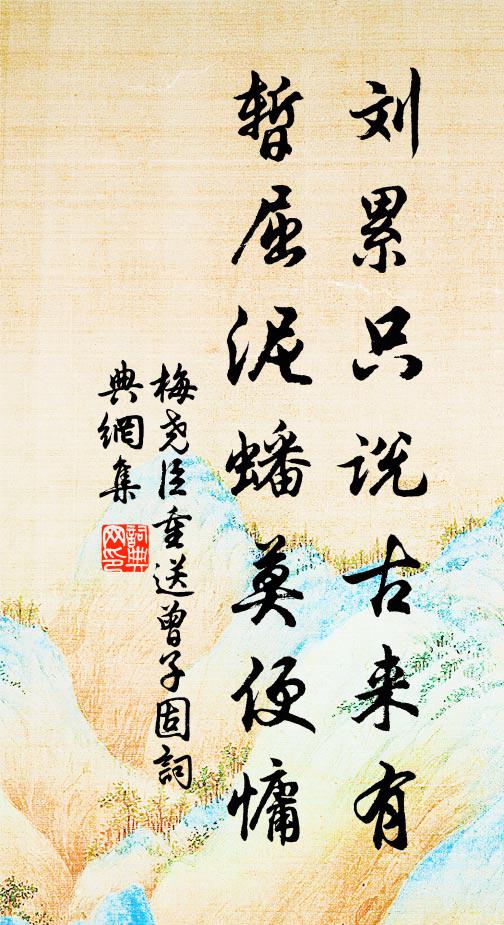 刘累只说古来有
暂屈泥蟠莫便慵
梅尧臣重送曾子固詞
典網集
詞典